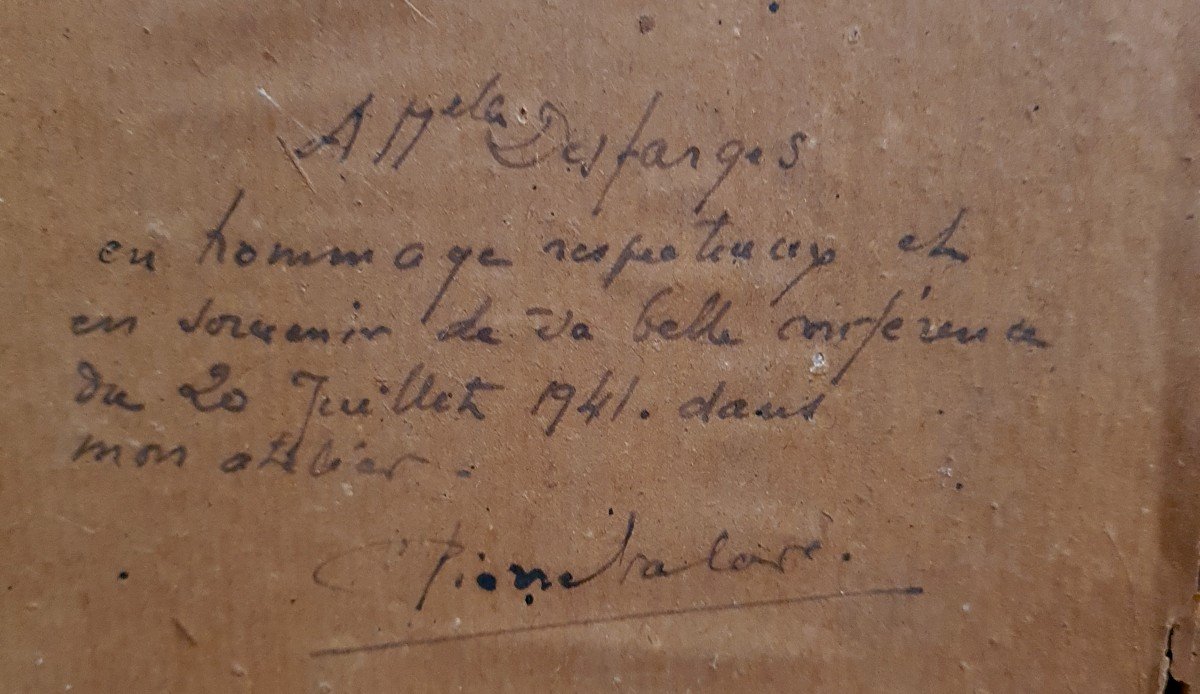 A Melle Desfarges
en hommage respectueux et
en souvenir de sa belle conférence
du 20 Juillet 1941. dans
mon atelier.
Pierre